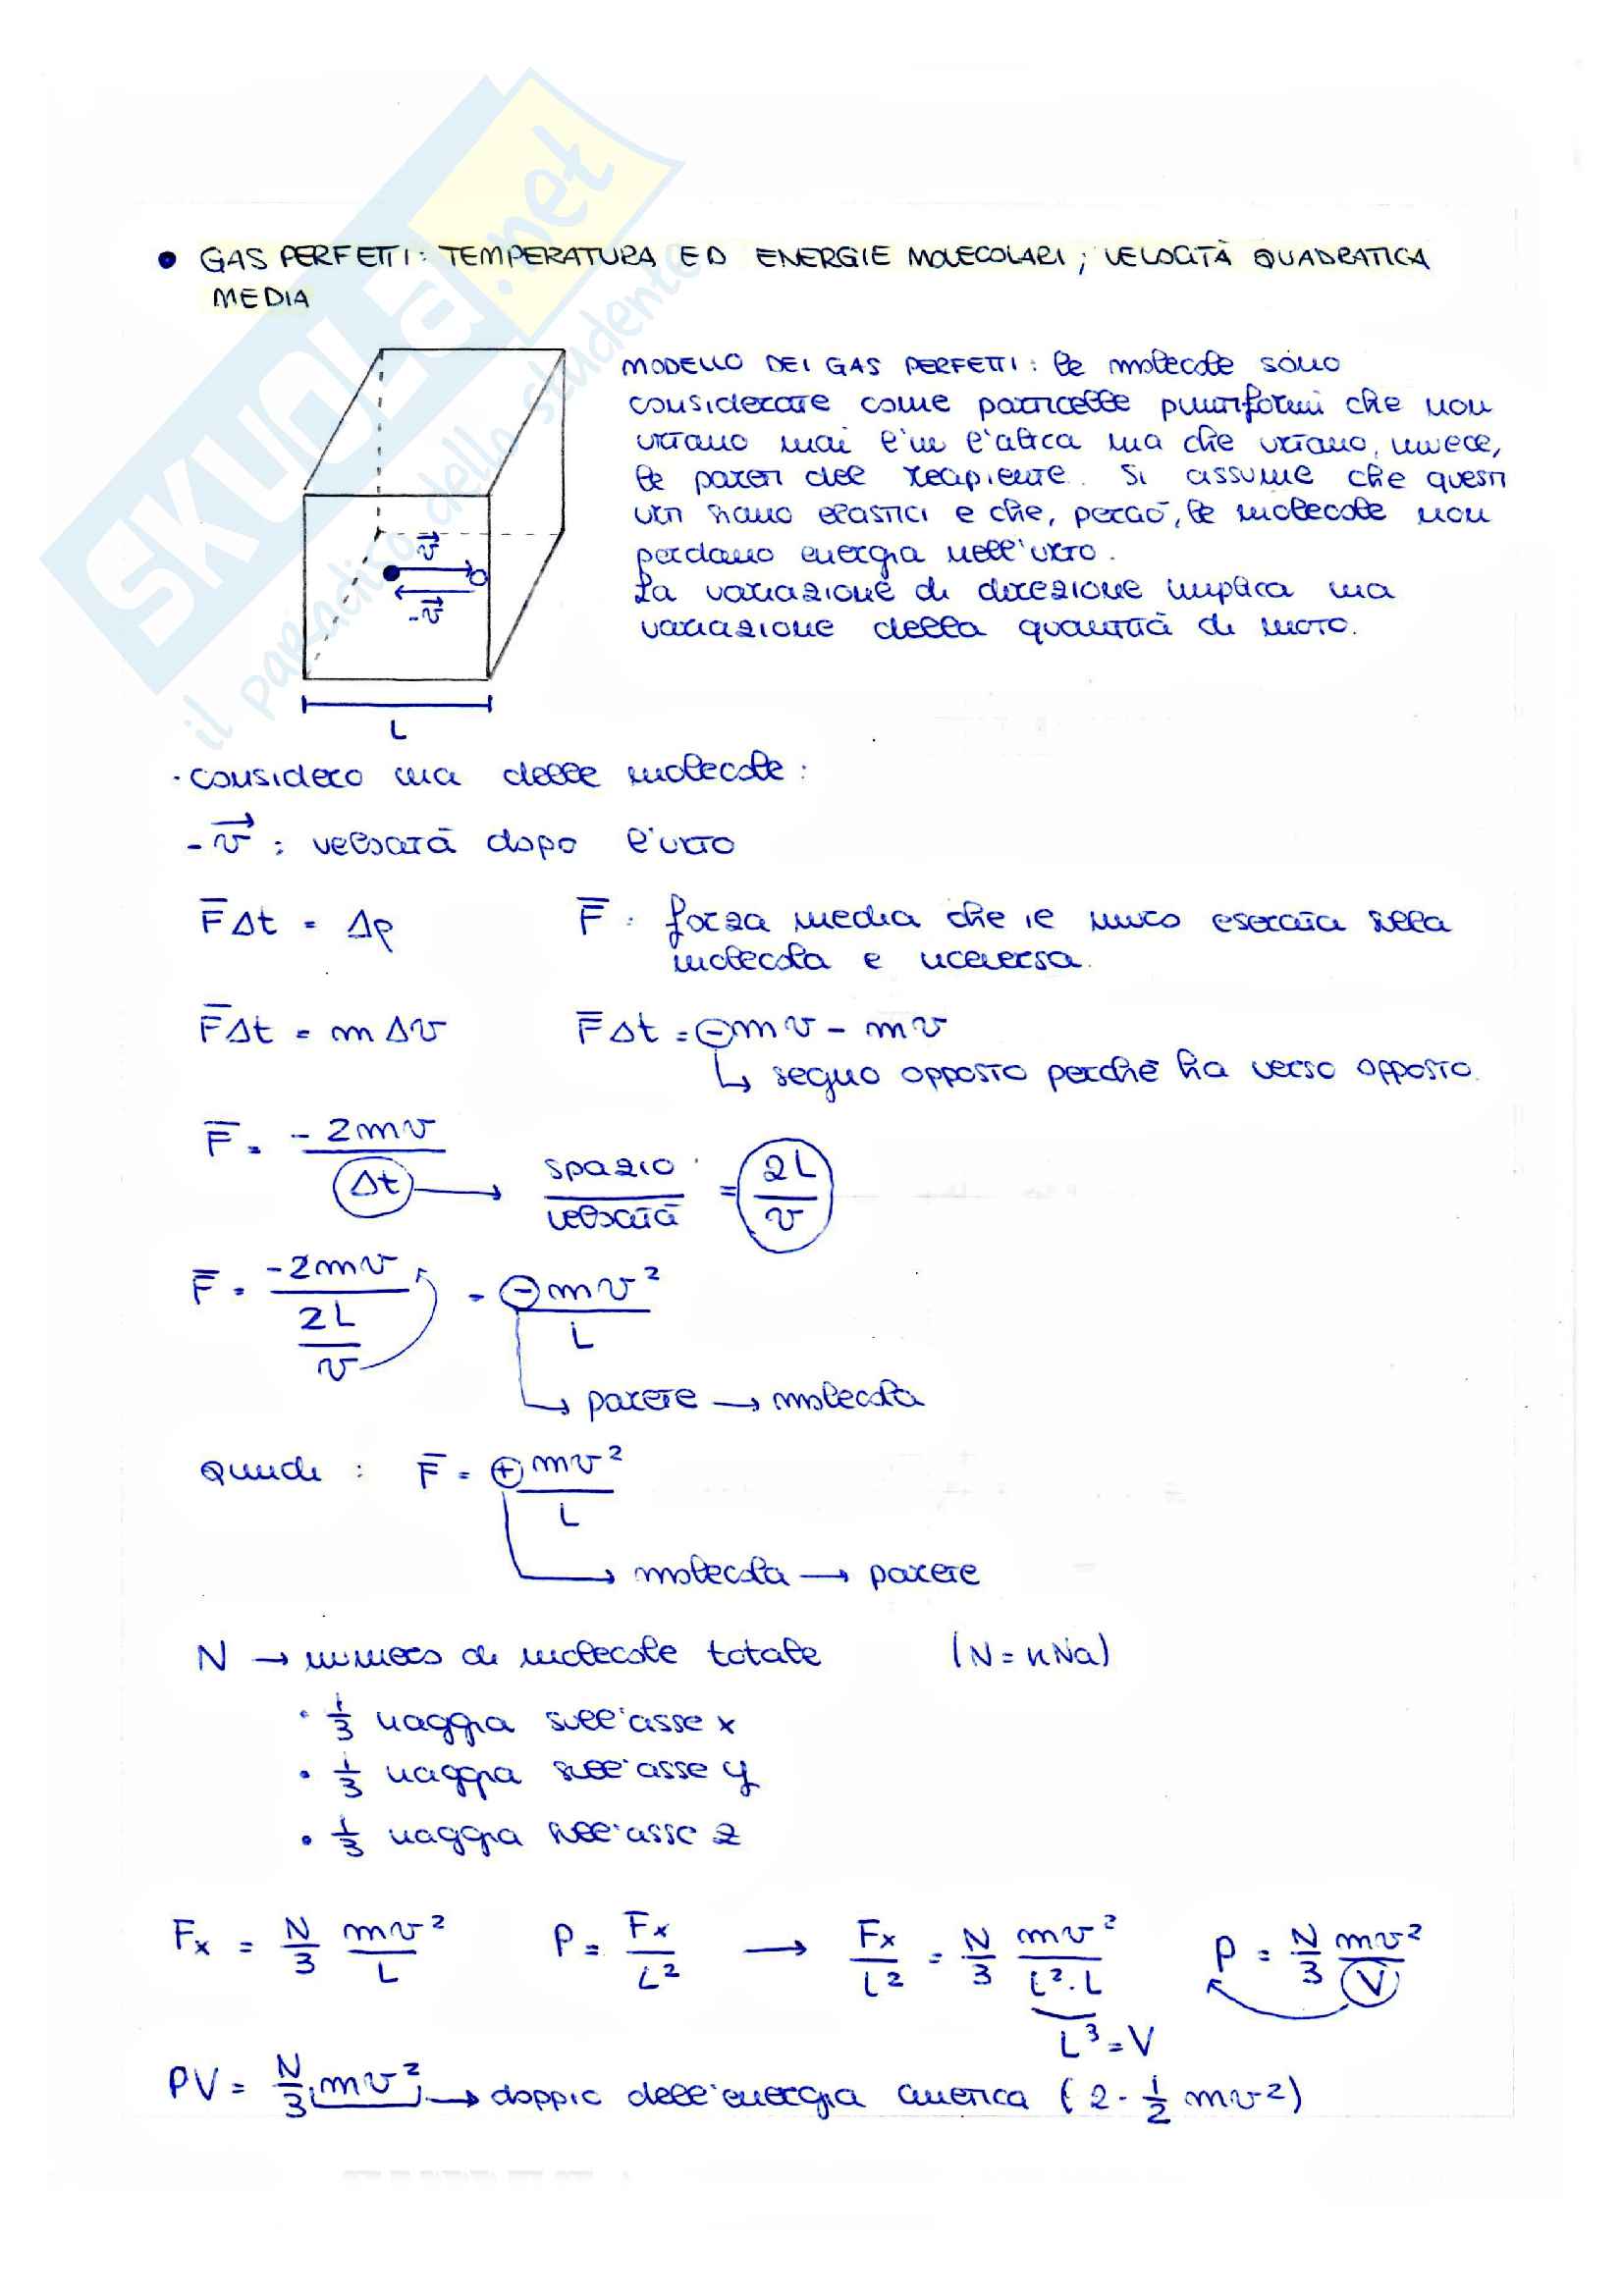 SKUOLA.net
il paradiso dello studente
• GAS PERFETTI: TEMPERATURA ED ENERGIE MOLECOLARI; VELOCITÀ QUADRATICA
MEDIA
MODELLO DEI GAS PERFETTI: le molecole sono
considerate come particelle puntiformi che non
urtano mai l'un l'altra ma che urtano, invece,
le pareti del recipiente. Si assume che questi
urti siano elastici e che, perciò, le molecole non
perdano energia nell'urto.
La variazione di direzione implica una
variazione della quantità di moto.
v⃗
-v⃗
L
· considero una delle molecole:
-v⃗ : velocità dopo l'urto
F̅Δt = Δp F̅ : forza media che il muro esercita sulla
molecola e viceversa.
F̅Δt = mΔv F̅Δt = -mv - mv
↳ segno opposto perché ha verso opposto.
F̅ = -2mv / Δt → spazio / velocità = 2L / v
F̅ = -2mv / (2L / v) = -mv² / L
↳ parete → molecola
Quindi : F̅ = + mv² / L
↳ molecola → parete
N → numero di molecole totale (N = nNa)
· 1/3 viaggia sull'asse x
• 1/3 viaggia sull'asse y
• 1/3 viaggia sull'asse z
Fx = N/3 mv²/L P = Fx/L² → Fx/L² = N/3 mv²/(L²·L) P = N/3 mv²/V
L³ = V
PV = N/3 mv² → doppio dell'energia cinetica (2 · 1/2 mv²)